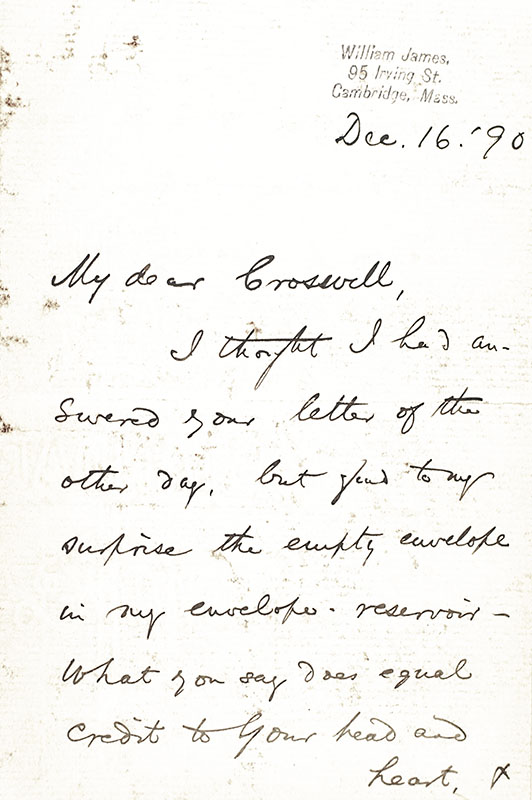 William James,
95 Irving St.
Cambridge, Mass.
Dec. 16. '90
My dear Croswell,
I thought I had an-
swered your letter of the
other day, but find to my
surprise the empty envelope
in my envelope-reservoir –
What you say does equal
credit to your head and
heart.